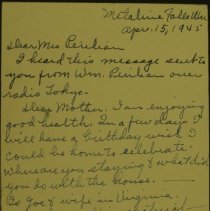 Metaline Falls Wn
Apr. 15, 1945
Dear Mrs Penham
I heard this message sent to
you from Wm. Penham over
radio Tokyo.
Dear Mother. I am enjoying
good health. In a few days I
will have a birthday wish I
could be home to celebrate.
Where are you staying & what did
you do with the house.
Is Joe & wife in Virginia.